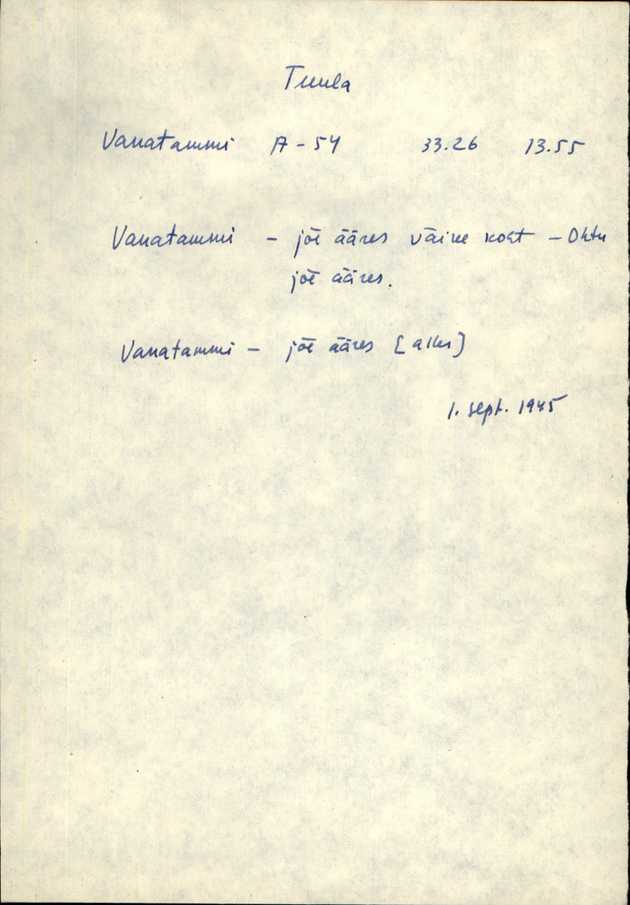 Tuula
Vanatammi A-54 33.26 13.55
Vanatammi - jõe ääres väike koht - Ohtu
jõe ääres.
Vanatammi - jõe ääres
1. sept. 1945